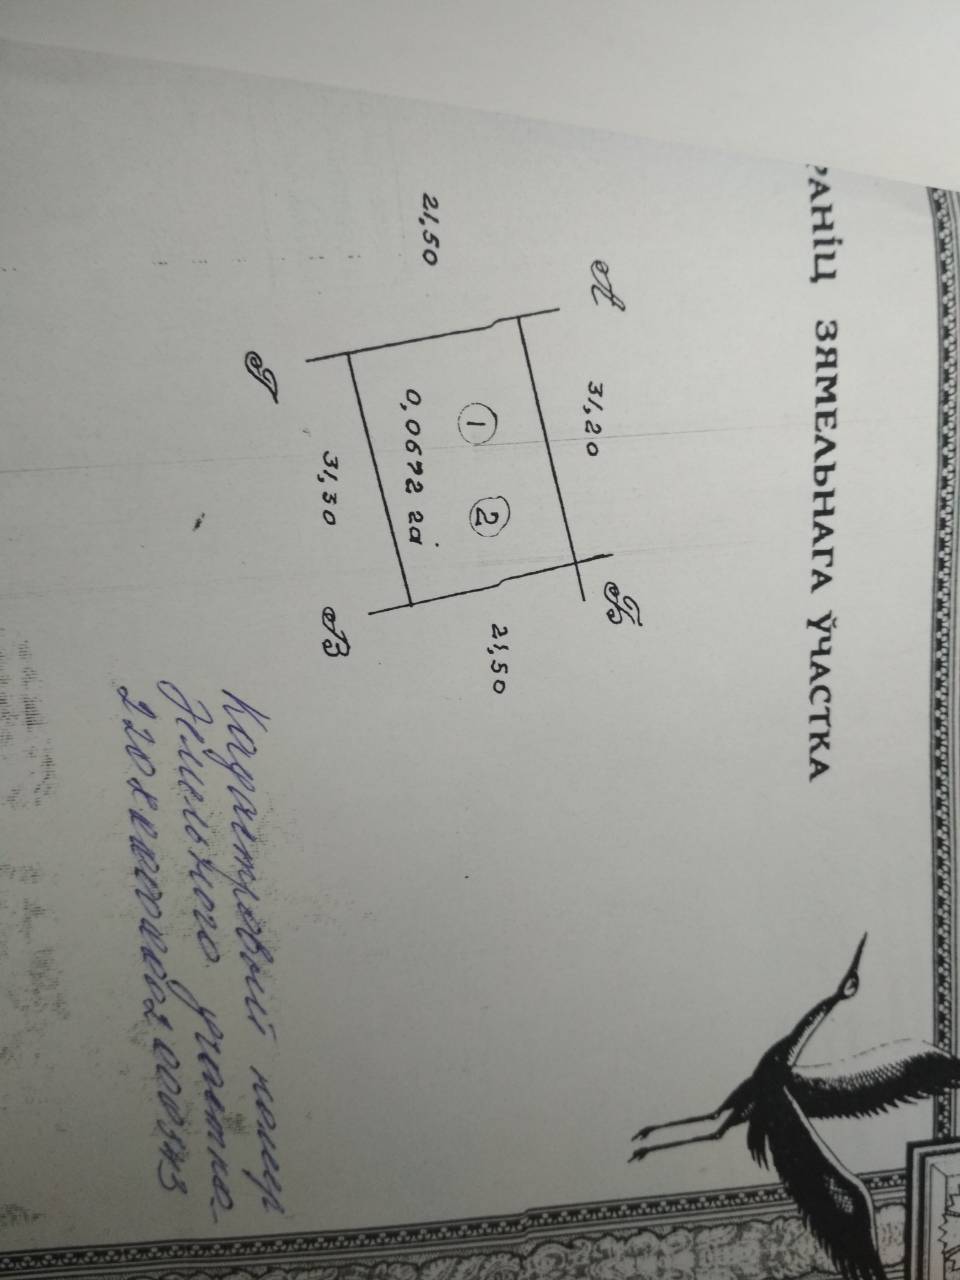 РАНІЦ ЗЯМЕЛЬНАГА ЎЧАСТКА
А
31,20
Б
21,50
1
2
21,50
0,0672 га
31,30
В
Г
Кадастровый номер
Земельного участка